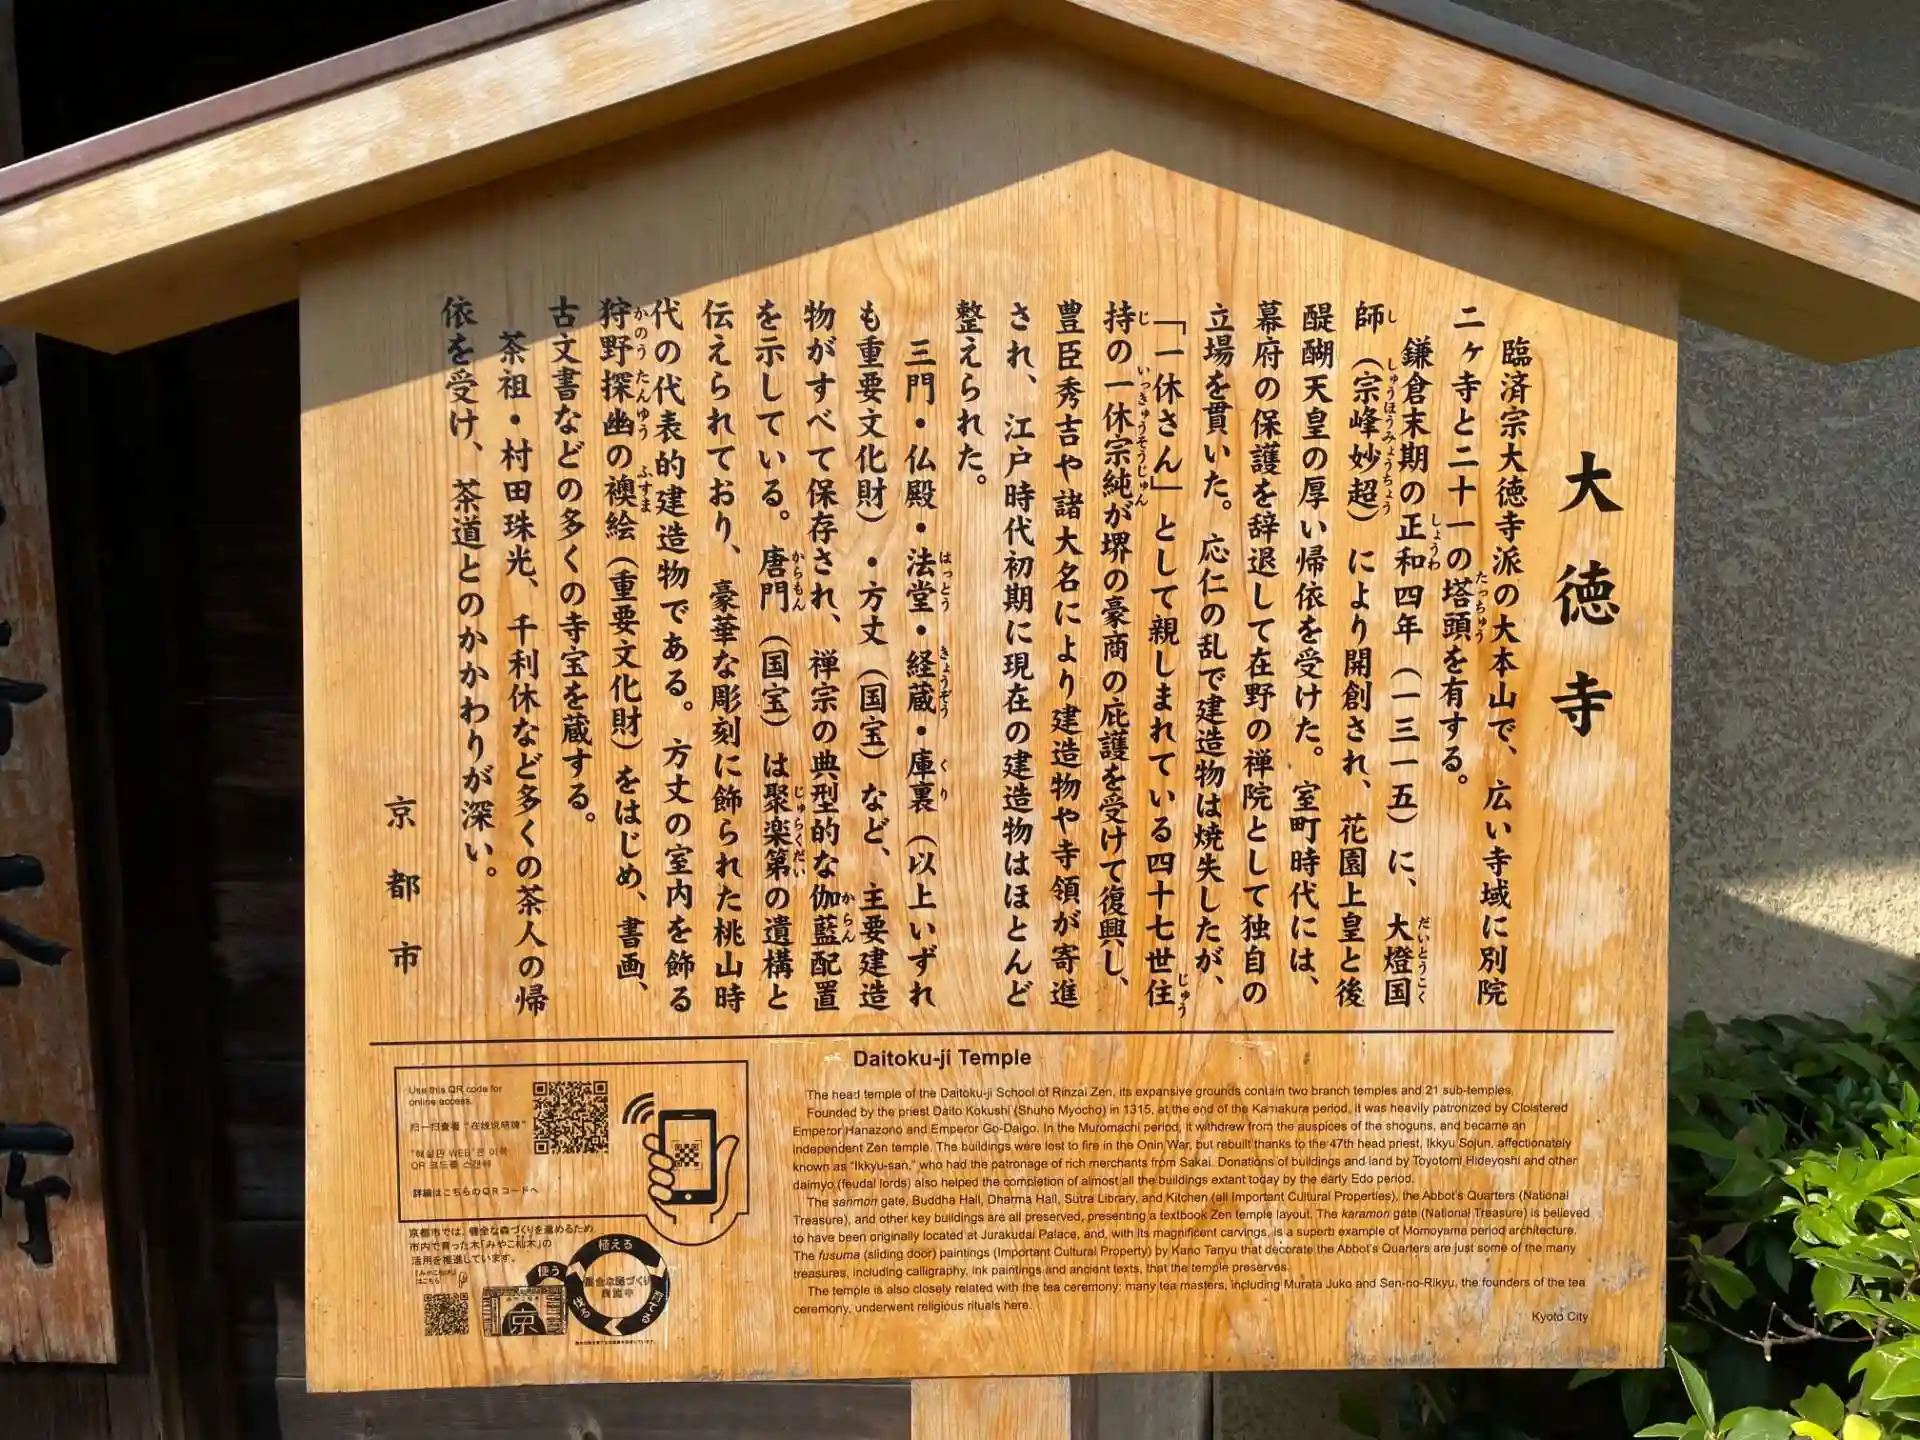 大徳寺
臨済宗大徳寺派の大本山で、広い寺域に別院
二ヶ寺と二十一の塔頭を有する。
たっちゅう
鎌倉末期の正和四年（一三一五）に、大燈国
しょうわ
だいとうこく
師（宗峰妙超）により開創され、花園上皇と後
し
しゅうほうみょうちょう
醍醐天皇の厚い帰依を受けた。室町時代には、
幕府の保護を辞退して在野の禅院として独自の
立場を貫いた。応仁の乱で建造物は焼失したが、
「一休さん」として親しまれている四十七世住
じゅう
持の一休宗純が堺の豪商の庇護を受けて復興し、
じ
いっきゅうそうじゅん
豊臣秀吉や諸大名により建造物や寺領が寄進
され、江戸時代初期に現在の建造物はほとんど
整えられた。
三門・仏殿・法堂・経蔵・庫裏（以上いずれ
はっとう
きょうぞう
くり
も重要文化財）・方丈（国宝）など、主要建造
物がすべて保存され、禅宗の典型的な伽藍配置
からん
を示している。唐門（国宝）は聚楽第の遺構と
からもん
じゅらくだい
伝えられており、豪華な彫刻に飾られた桃山時
代の代表的建造物である。方丈の室内を飾る
狩野探幽の襖絵（重要文化財）をはじめ、書画、
かのうたんゆう
ふすま
古文書などの多くの寺宝を蔵する。
茶祖・村田珠光、千利休など多くの茶人の帰
依を受け、茶道とのかかわりが深い。
京都市
Daitoku-ji Temple
The head temple of the Daitoku-ji School of Rinzai Zen, its expansive grounds contain two branch temples and 21 sub-temples.
Founded by the priest Daito Kokushi (Shuho Myocho) in 1315, at the end of the Kamakura period, it was heavily patronized by Cloistered
Emperor Hanazono and Emperor Go-Daigo. In the Muromachi period, it withdrew from the auspices of the shoguns, and became an
independent Zen temple. The buildings were lost to fire in the Onin War, but rebuilt thanks to the 47th head priest, Ikkyu Sojun, affectionately
known as "Ikkyu-san," who had the patronage of rich merchants from Sakai. Donations of buildings and land by Toyotomi Hideyoshi and other
daimyo (feudal lords) also helped the completion of almost all the buildings extant today by the early Edo period.
The sanmon gate, Buddha Hall, Dharma Hall, Sutra Library, and Kitchen (all Important Cultural Properties), the Abbot's Quarters (National
Treasure), and other key buildings are all preserved, presenting a textbook Zen temple layout. The karamon gate (National Treasure) is believed
to have been originally located at Jurakudai Palace, and, with its magnificent carvings, is a superb example of Momoyama period architecture.
The fusuma (sliding door) paintings (Important Cultural Property) by Kano Tanyu that decorate the Abbot's Quarters are just some of the many
treasures, including calligraphy, ink paintings and ancient texts, that the temple preserves.
The temple is also closely related with the tea ceremony: many tea masters, including Murata Juko and Sen-no-Rikyu, the founders of the tea
ceremony, underwent religious rituals here.
Kyoto City
Use this QR code for
online access.
扫一扫查看“在线说明牌”
"해설판 WEB"은 이쪽
QR 코드를 스캔해
詳細はこちらのQRコードへ
京都市では、健全な森づくりを進めるため、
市内で育った木「みやこ杣木」の
活用を推進しています。
「みやこ杣木」
はこちら
植える
育てる
伐る
使う
健全な森づくり
京